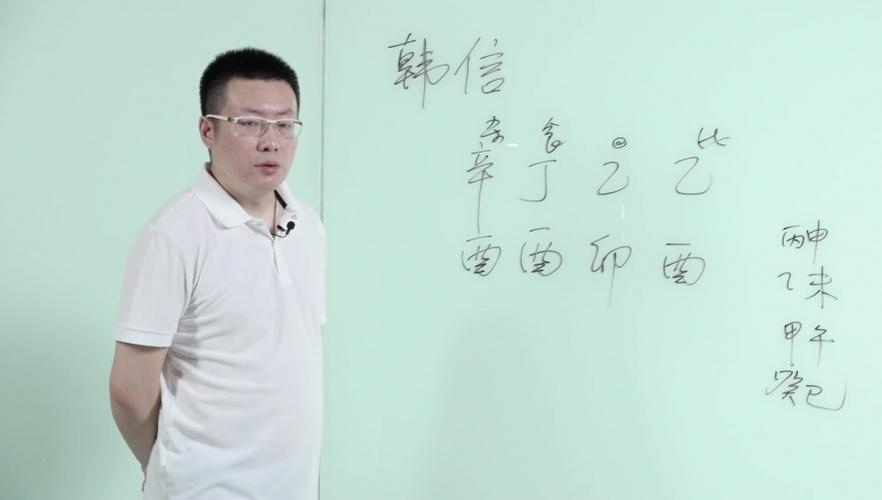 韩信
杀 食 比
辛 丁 乙 乙
酉 酉 卯 酉
丙申
乙未
甲午
癸巳